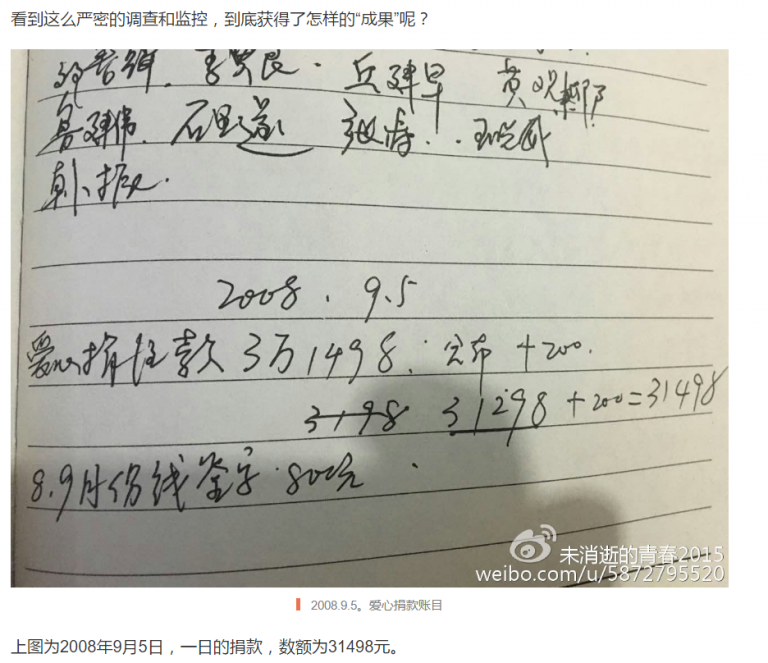 看到这么严密的调查和监控，到底获得了怎样的“成果”呢？
2008.9.5
爱心捐住款3万1498. 公布+200.
3198 31298+200=31498
8.9月份线签字.800元.
未消逝的青春2015
weibo.com/u/5872795520
2008.9.5。爱心捐款账目
上图为2008年9月5日，一日的捐款，数额为31498元。